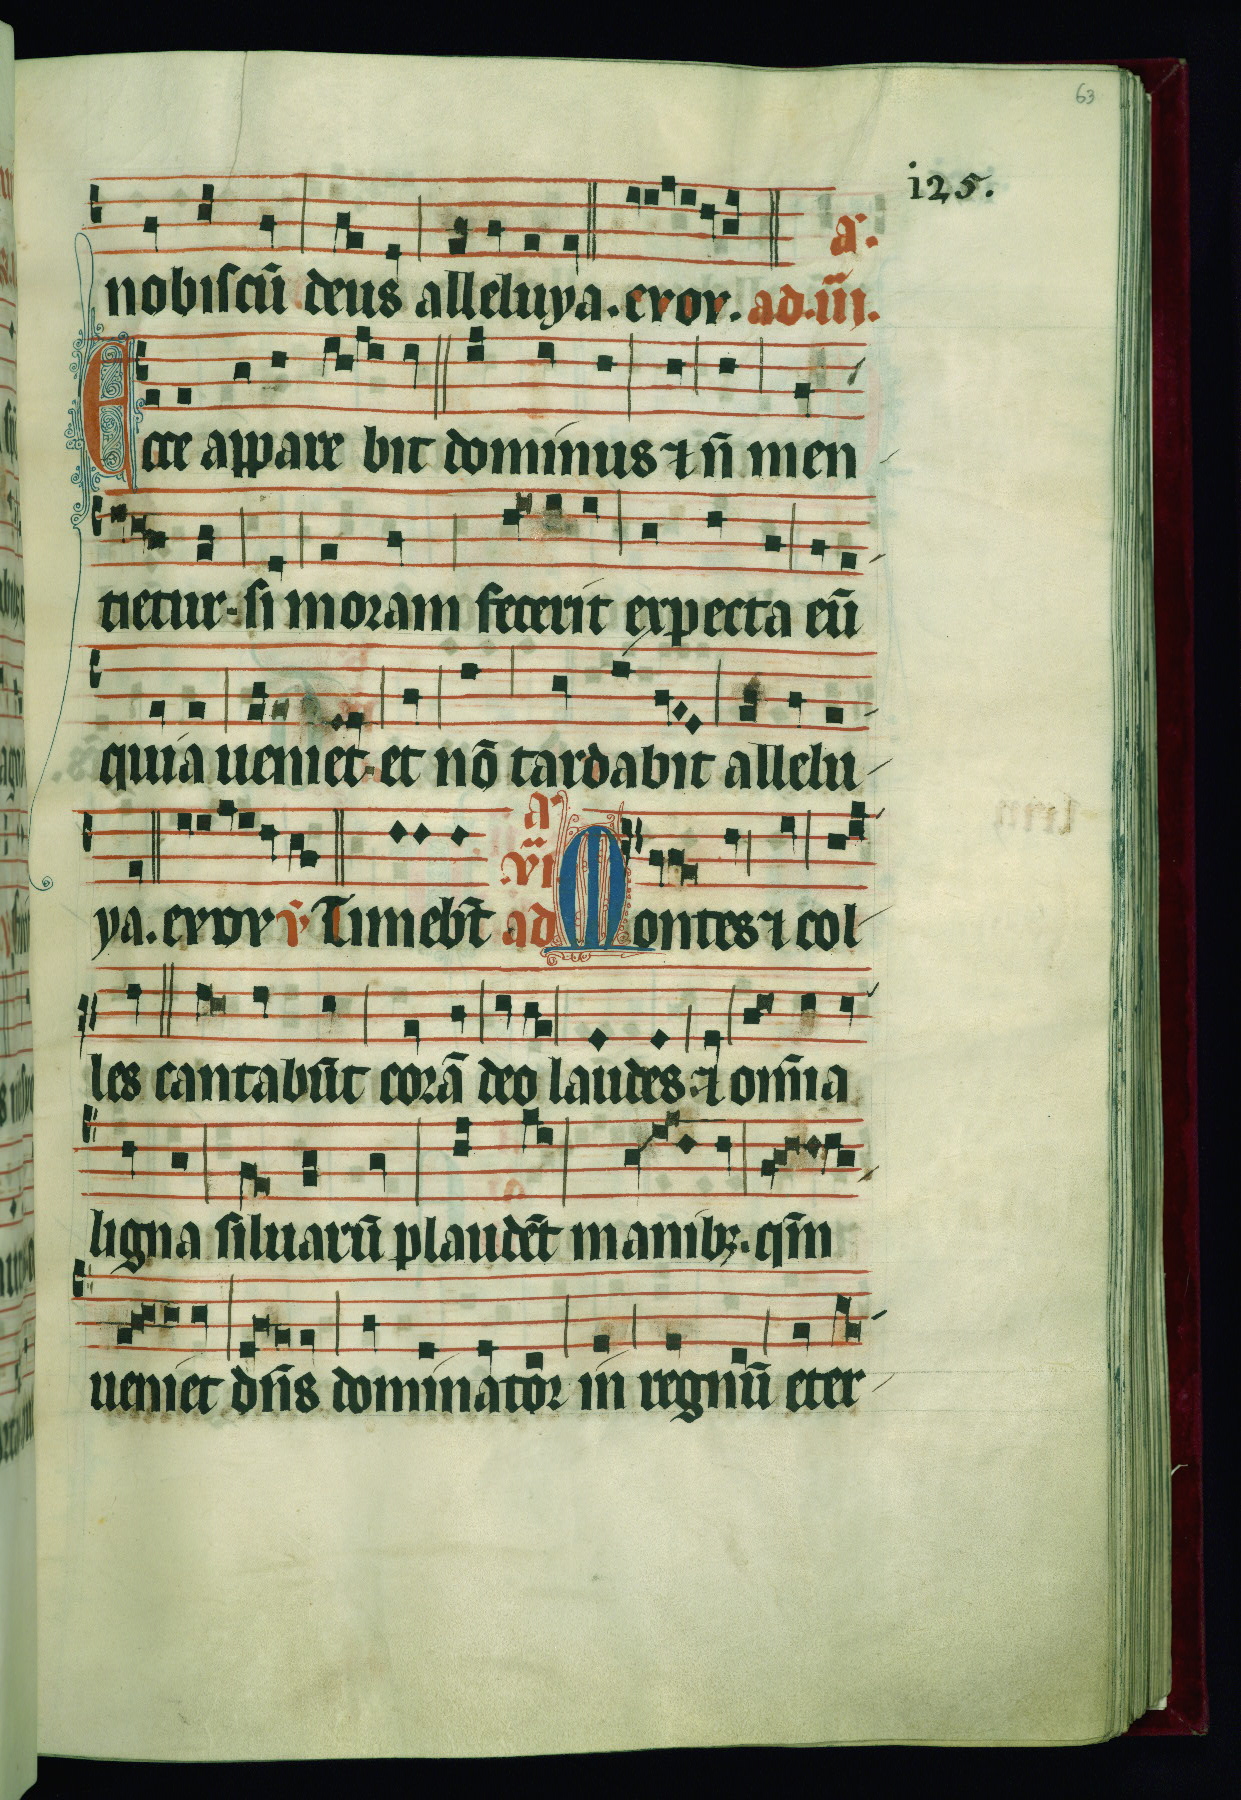 63
i25.
a.
nobiscū deus alleluya. evov. ad. iii.
Ecce appare bit dominus ⁊ ñ men
tietur. si moram fecerit expecta eū
quia ueniet. et nō tardabit allelu
a
vi
ya. evov v̄ Timebt̄ ad Montes ⁊ col
les cantabūt corā deo laudes. ⁊ om̄ia
ligna siluarū plaudēt manibꝫ. qm̄
ueniet dn̄s dominator in regnū eter